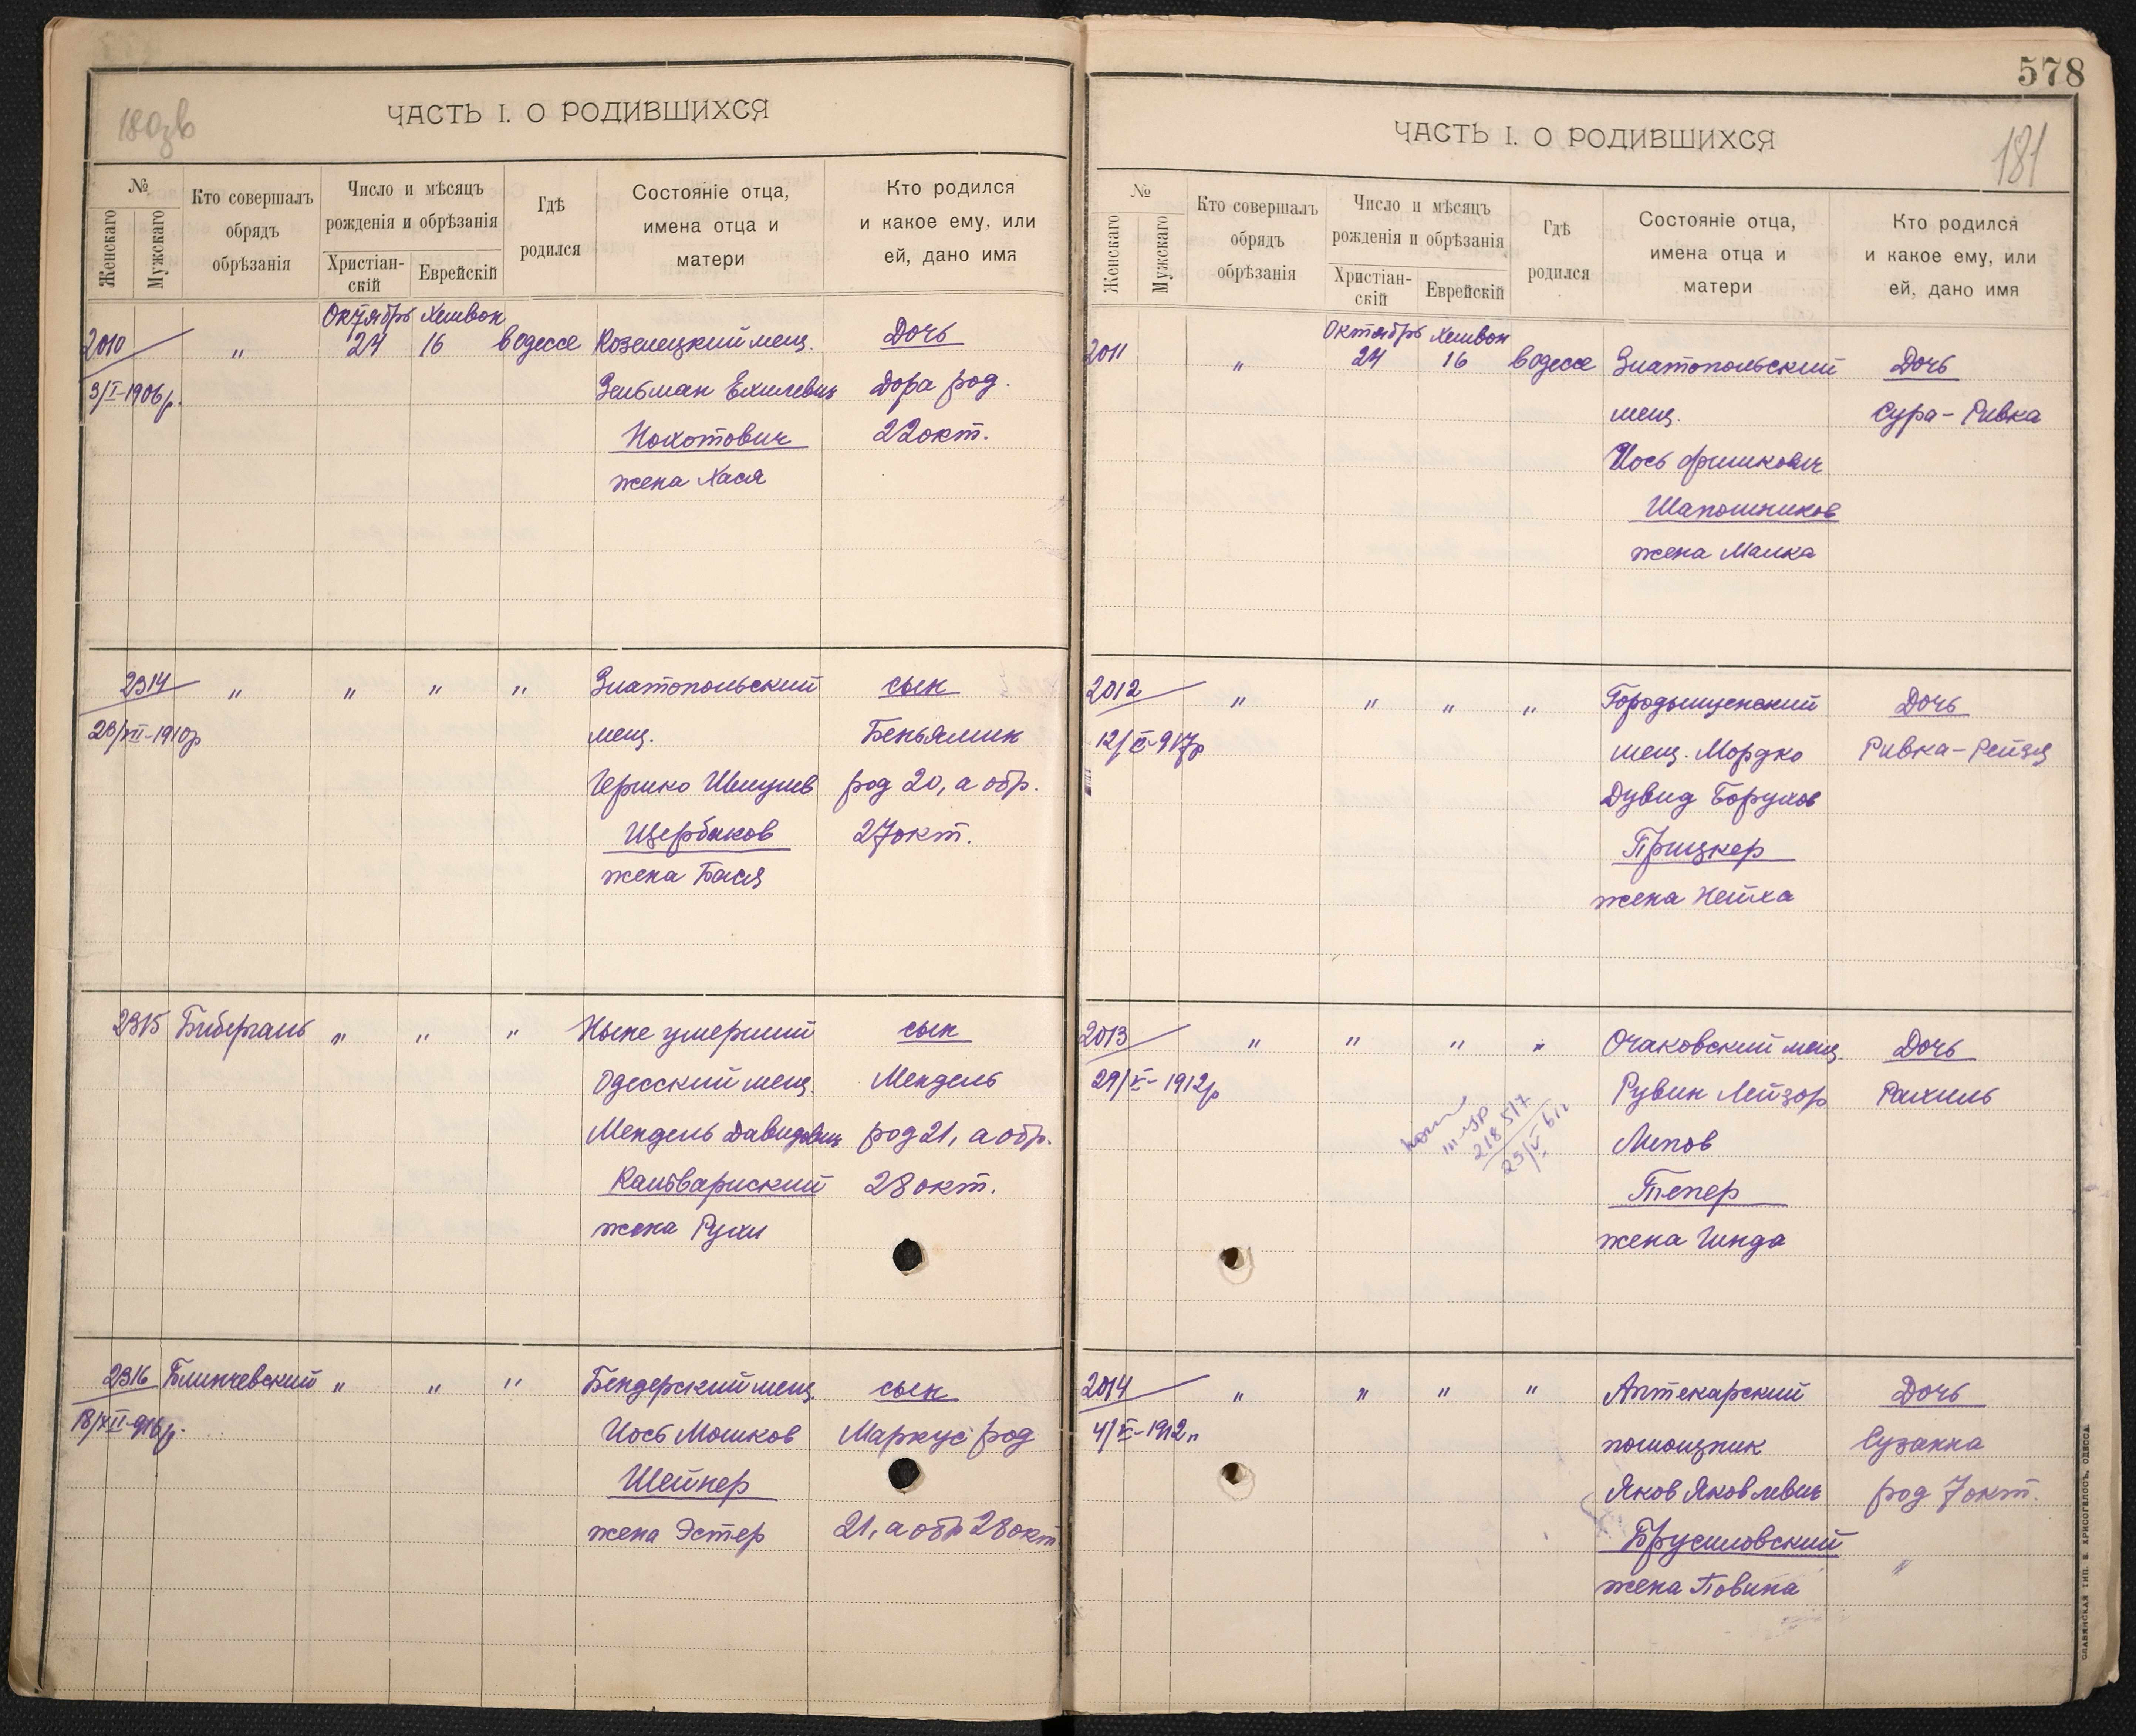 ЧАСТЬ I. О РОДИВШИХСЯ
180зв
№
Женскаго
Мужскаго
Кто совершалъ
обрядъ
обрѣзанія
Число и мѣсяцъ
рожденія и обрѣзанія
Христіан-
скій
Еврейскій
Гдѣ
родился
Состояніе отца,
имена отца и
матери
Кто родился
и какое ему, или
ей, дано имя
Октябрь Хешвон
2010 " 24 16 в Одессе Козелецкий мещ. Дочь
3/I-1906р. Зельман Ехилевич Дора род.
Нохотович 22 окт.
жена Хася
2314 " " " " Златопольский сын
23/XII-1910р мещ. Беньямин
Гершко Шмулев род 20, а обр.
Щербаков 27 окт.
жена Бася
2315 Бибергаль " " " Ныне умерший сын
Одесский мещ. Мендель
Мендель Давидович род 21, а обр.
Кальвариский 28 окт.
жена Рухл
2316 Блинчевский " " " Бендерский мещ. сын
18/XII-916р. Иось Мошков Маркус род
Шейнер
жена Эстер 21, а обр 28 окт
578
ЧАСТЬ I. О РОДИВШИХСЯ
181
№
Женскаго
Мужскаго
Кто совершалъ
обрядъ
обрѣзанія
Число и мѣсяцъ
рожденія и обрѣзанія
Христіан-
скій
Еврейскій
Гдѣ
родился
Состояніе отца,
имена отца и
матери
Кто родился
и какое ему, или
ей, дано имя
Октябрь Хешвон
2011 " 24 16 в Одессе Златопольский Дочь
мещ. Сура-Ривка
Иось Фишкович
Шапошников
жена Малка
2012 " " " " Городыщенский Дочь
мещ. Мордко Ривка-Рейзя
Дувид Борухов
Прицкер
жена Нейха
2013 " " " " Очаковский мещ. Дочь
29/X-1912р Рувин Лейзор Рахиль
Липов
Тепер
жена Гинда
218517
2014 " " " " Аптекарский Дочь
помощник Сузанна
Яков Яковлевич род 7 окт.
Брусиловский
жена Повина "
СЛАВЯНСКАЯ ТИП. Е. ХРИСОГЕЛОСЪ, ОДЕССА